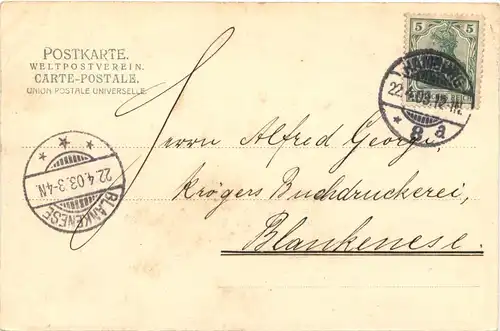 POSTKARTE.
WELTPOSTVEREIN.
CARTE-POSTALE.
UNION POSTALE UNIVERSELLE.
5 5
HAMBURG
22.4.03.12-1N.
* 8 a
22.4.03.3-4N.
BLANKENESE
Herrn Alfred Georgi,
Krögers Buchdruckerei,
Blankenese.